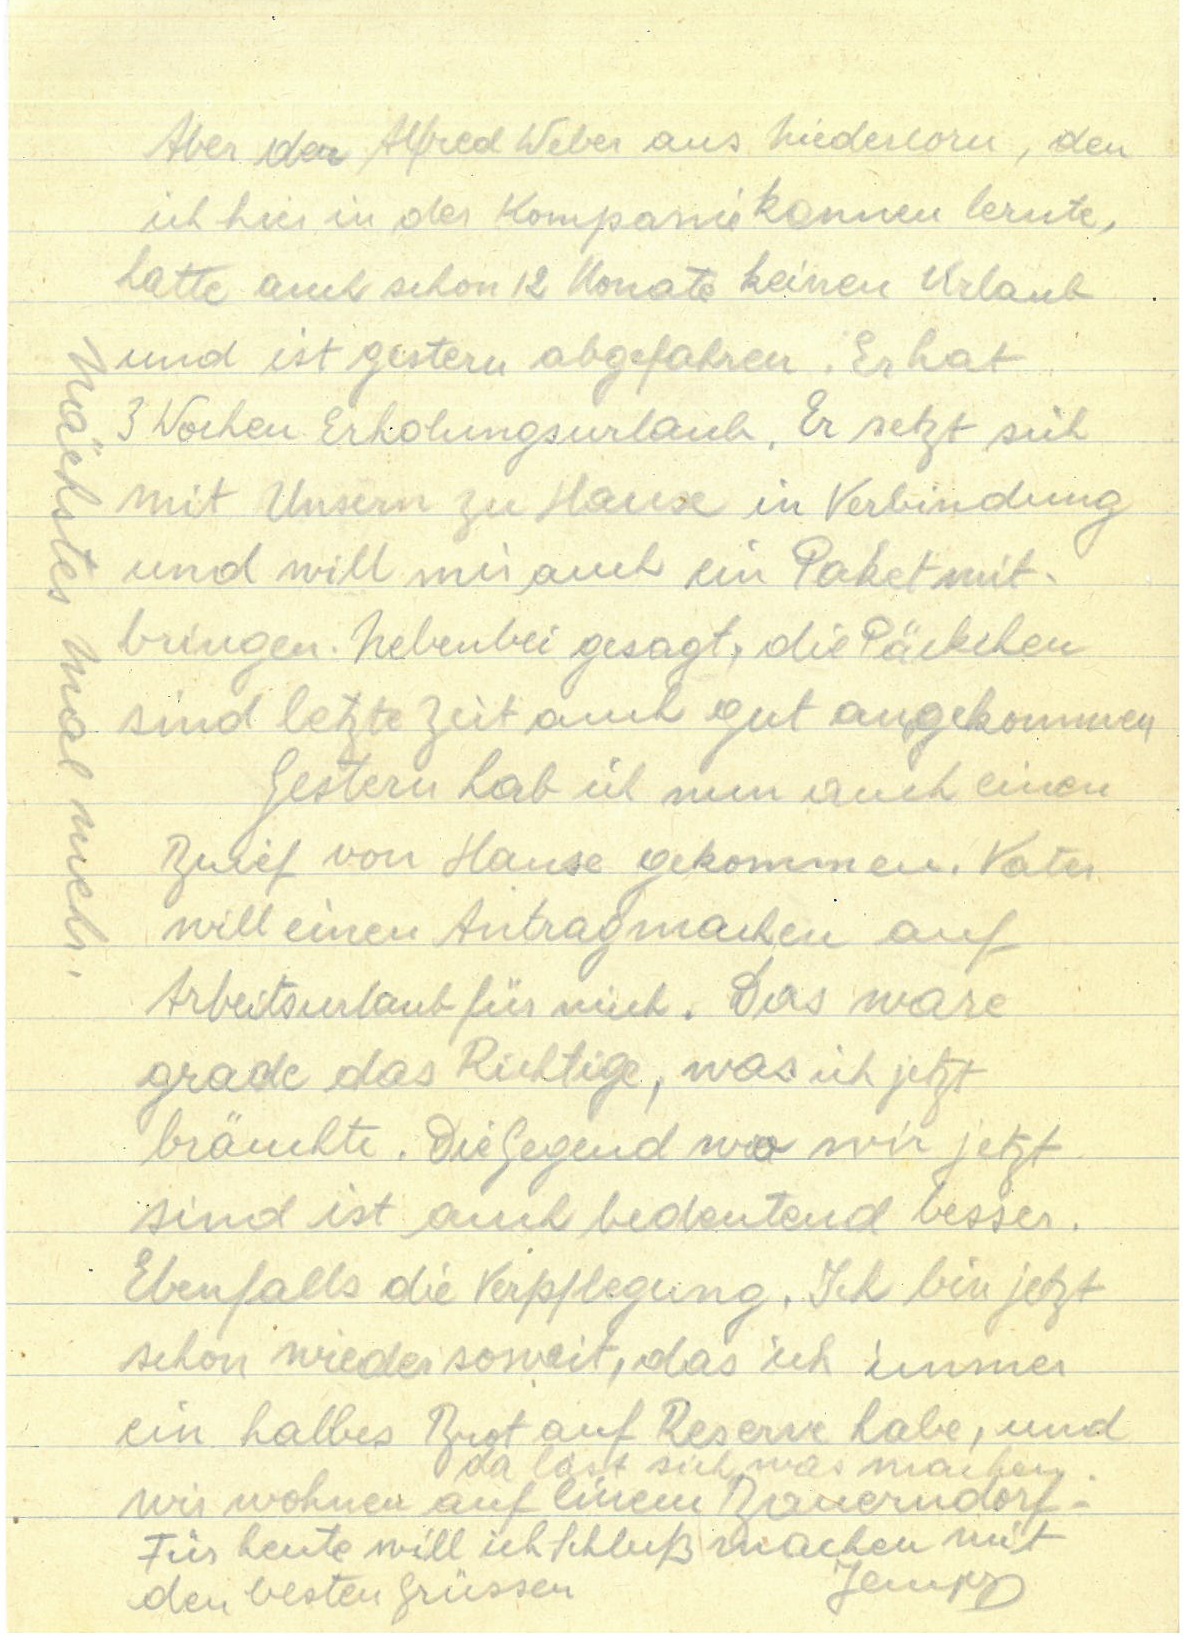 Aber der Alfred Weber aus Niederkorn, den
ich hier in der Kompanie kannen lernte,
hatte auch schon 12 Monate keinen Urlaub
und ist gestern abgefahren. Er hat
3 Wochen Erholungsurlaub. Er setzt sich
mit Unsern zu Hause in Verbindung
und will mir auch ein Paket mit-
bringen. Nebenbei gesagt, die Päckchen
sind letzte Zeit auch gut angekommen
Gestern hab ich nun auch einen
Brief von Hause gekommen. Vater
will einen Antrag machen auf
Arbeitsurlaub für mich. Das wäre
grade das Richtige, was ich jetzt
bräuchte. Die Gegend wo wir jetzt
sind ist auch bedeutend besser.
Ebenfalls die Verpflegung. Ich bin jetzt
schon wieder soweit, das ich immer
ein halbes Brot auf Reserve habe, und
wir wohnen auf einem Bauerndorf.
da läst sich was machen.
Für heute will ich Schluß machen mit
den besten Grüssen Jempy
Nächstes mal mehr.